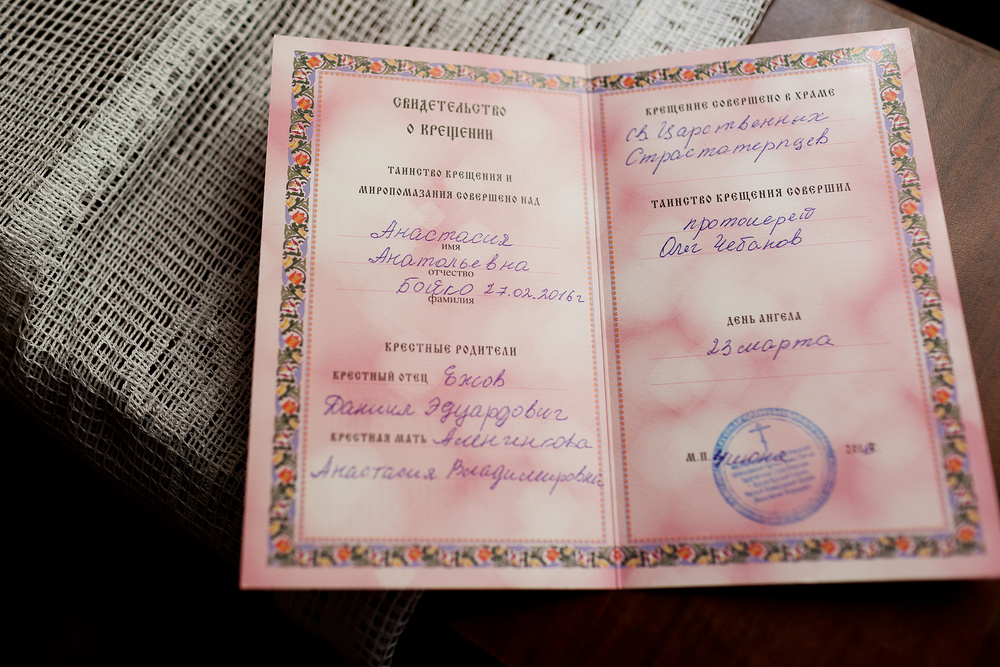 СВИДЕТЕЛЬСТВО
О КРЕЩЕНИИ
ТАИНСТВО КРЕЩЕНИЯ И
МИРОПОМАЗАНИЯ СОВЕРШЕНО НАД
Анастасия
имя
Анатольевна
отчество
Бойко 27.02.2016г
фамилия
КРЕСТНЫЕ РОДИТЕЛИ
КРЕСТНЫЙ ОТЕЦ Ежов
Даниил Эдуардович
КРЕСТНАЯ МАТЬ
Анастасия Владимировна
КРЕЩЕНИЕ СОВЕРШЕНО В ХРАМЕ
св. Царственных
Страстотерпцев
ТАИНСТВО КРЕЩЕНИЯ СОВЕРШИЛ
протоиерей
Олег Чебанов
ДЕНЬ АНГЕЛА
23 марта
М.П.